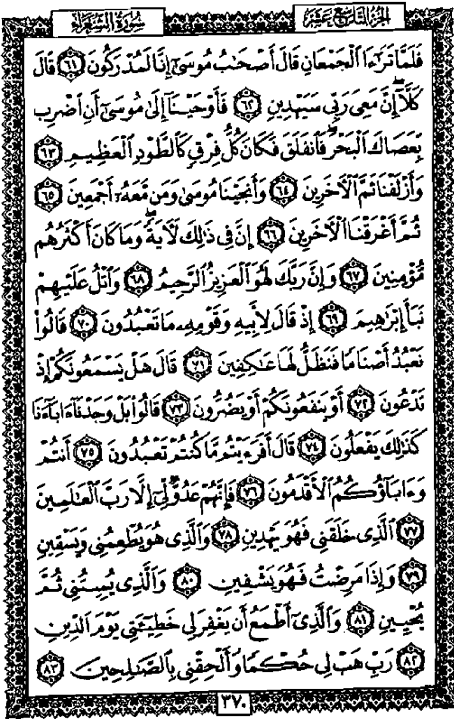 الجزء التاسع عشر
سورة الشعراء
فَلَمَّا تَرَٰٓءَا ٱلْجَمْعَانِ قَالَ أَصْحَٰبُ مُوسَىٰٓ إِنَّا لَمُدْرَكُونَ ٦١ قَالَ
كَلَّآ إِنَّ مَعِىَ رَبِّى سَيَهْدِينِ ٦٢ فَأَوْحَيْنَآ إِلَىٰ مُوسَىٰٓ أَنِ ٱضْرِب
بِّعَصَاكَ ٱلْبَحْرَ ۖ فَٱنفَلَقَ فَكَانَ كُلُّ فِرْقٍ كَٱلطَّوْدِ ٱلْعَظِيمِ ٦٣
وَأَزْلَفْنَا ثَمَّ ٱلْءَاخَرِينَ ٦٤ وَأَنجَيْنَا مُوسَىٰ وَمَن مَّعَهُۥٓ أَجْمَعِينَ ٦٥
ثُمَّ أَغْرَقْنَا ٱلْءَاخَرِينَ ٦٦ إِنَّ فِى ذَٰلِكَ لَءَايَةً ۖ وَمَا كَانَ أَكْثَرُهُم
مُّؤْمِنِينَ ٦٧ وَإِنَّ رَبَّكَ لَهُوَ ٱلْعَزِيزُ ٱلرَّحِيمُ ٦٨ وَٱتْلُ عَلَيْهِمْ
نَبَأَ إِبْرَٰهِيمَ ٦٩ إِذْ قَالَ لِأَبِيهِ وَقَوْمِهِۦ مَا تَعْبُدُونَ ٧٠ قَالُوا۟
نَعْبُدُ أَصْنَامًا فَنَظَلُّ لَهَا عَٰكِفِينَ ٧١ قَالَ هَلْ يَسْمَعُونَكُمْ إِذْ
تَدْعُونَ ٧٢ أَوْ يَنفَعُونَكُمْ أَوْ يَضُرُّونَ ٧٣ قَالُوا۟ بَلْ وَجَدْنَآ ءَابَآءَنَا
كَذَٰلِكَ يَفْعَلُونَ ٧٤ قَالَ أَفَرَءَيْتُم مَّا كُنتُمْ تَعْبُدُونَ ٧٥ أَنتُمْ
وَءَابَآؤُكُمُ ٱلْأَقْدَمُونَ ٧٦ فَإِنَّهُمْ عَدُوٌّ لِّىٓ إِلَّا رَبَّ ٱلْعَٰلَمِينَ
٧٧ ٱلَّذِى خَلَقَنِى فَهُوَ يَهْدِينِ ٧٨ وَٱلَّذِى هُوَ يُطْعِمُنِى وَيَسْقِينِ
٧٩ وَإِذَا مَرِضْتُ فَهُوَ يَشْفِينِ ٨٠ وَٱلَّذِى يُمِيتُنِى ثُمَّ
يُحْيِينِ ٨١ وَٱلَّذِىٓ أَطْمَعُ أَن يَغْفِرَ لِى خَطِيٓـَٔتِى يَوْمَ ٱلدِّينِ
٨٢ رَبِّ هَبْ لِى حُكْمًا وَأَلْحِقْنِى بِٱلصَّٰلِحِينَ ٨٣
٣٧٠